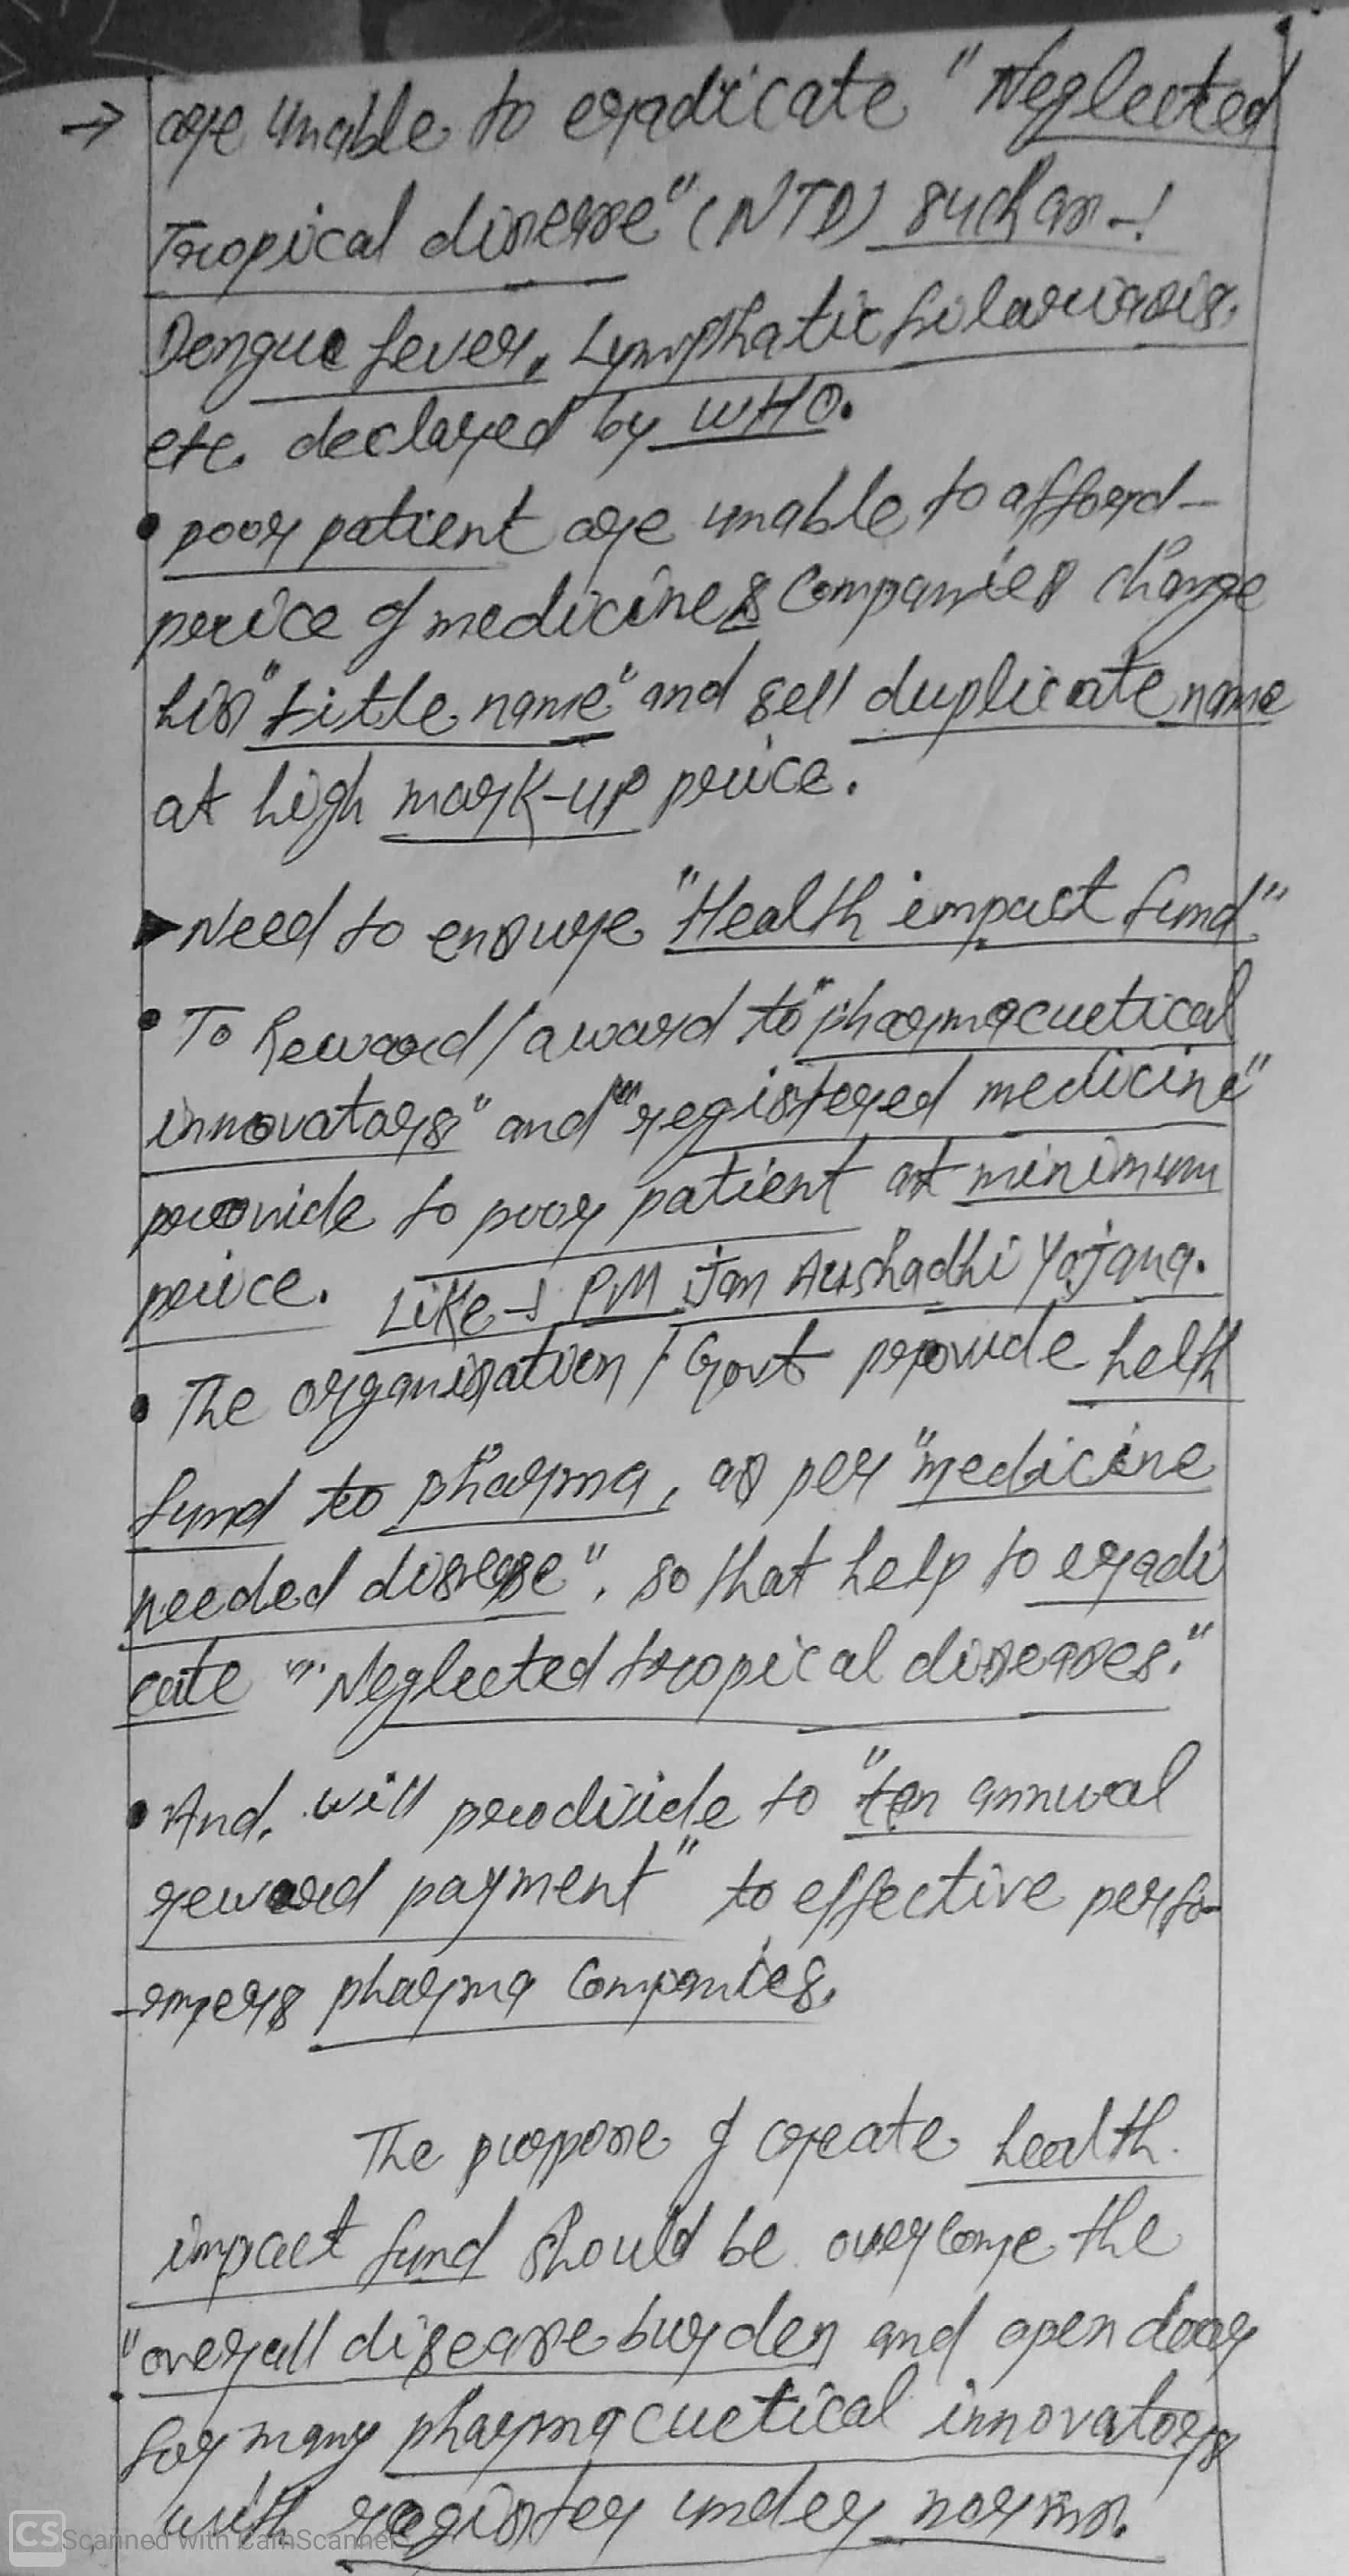 → are unable to eradicate "Neglected
Tropical disease" (NTD) such as -!
Dengue fever, Lymphatic filariasis,
etc. declared by WHO.
• poor patient are unable to afford -
price of medicine & Companies change
his "title name" and sell duplicate name
at high mark-up price.
▶ Need to ensure "Health impact fund"
• To Reward/award to "pharmacuetical
innovators" and "registered medicine"
provide to poor patient at minimum
price. Like -! PM Jan Aushadhi Yojana.
• The organisation / Govt provide helth
fund to pharma, as per "medicine
needed disease", so that help to eradi
cate "Neglected tropical diseases."
• And, will prodivide to "ten annual
reward payment" to effective perfo-
-rmers pharma Companies.
The purpose of create health
impact fund should be overcome the
"overall disease burden and open door
for many pharmacuetical innovators
with register under norms.
CS Scanned with CamScanner